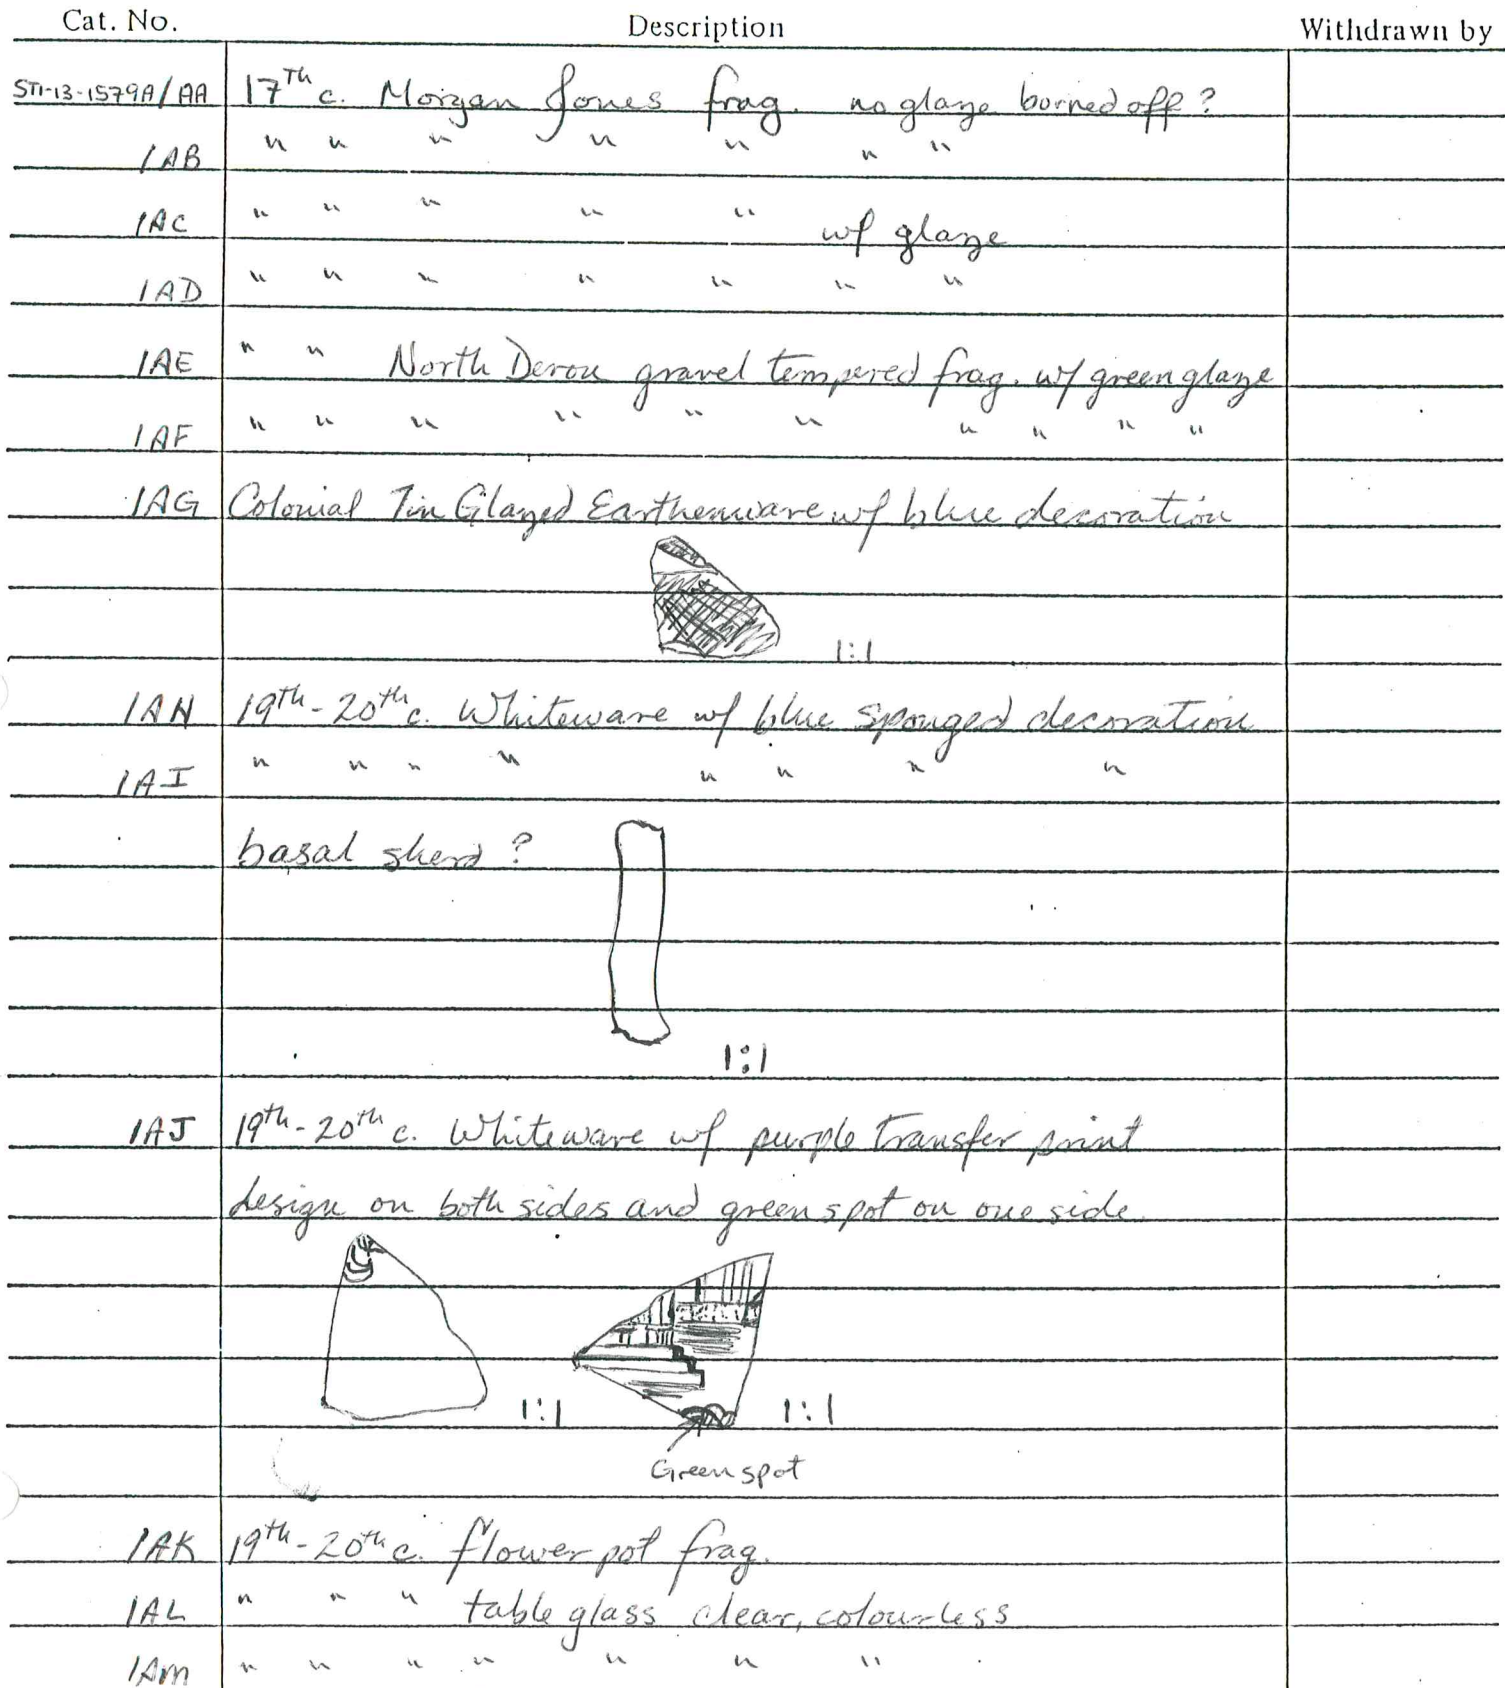 Cat. No. Description Withdrawn by
ST1-13-1579A/AA 17th c. Morgan Jones frag. no glaze borned off?
/AB " " " " " " "
/AC " " " " " w/ glaze
/AD " " " " " " "
/AE " " North Devon gravel tempered frag. w/ green glaze
/AF " " " " " " " " " "
/AG Colonial Tin Glazed Earthenware w/ blue decoration
1:1
/AH 19th-20th c. Whiteware w/ blue sponged decoration
/AI " " " " " " " "
basal sherd?
1:1
/AJ 19th-20th c. Whiteware w/ purple transfer print
design on both sides and green spot on one side.
1:1 1:1
Green spot
/AK 19th-20th c. flower pot frag.
/AL " " " table glass clear, colourless
/AM " " " " " " "